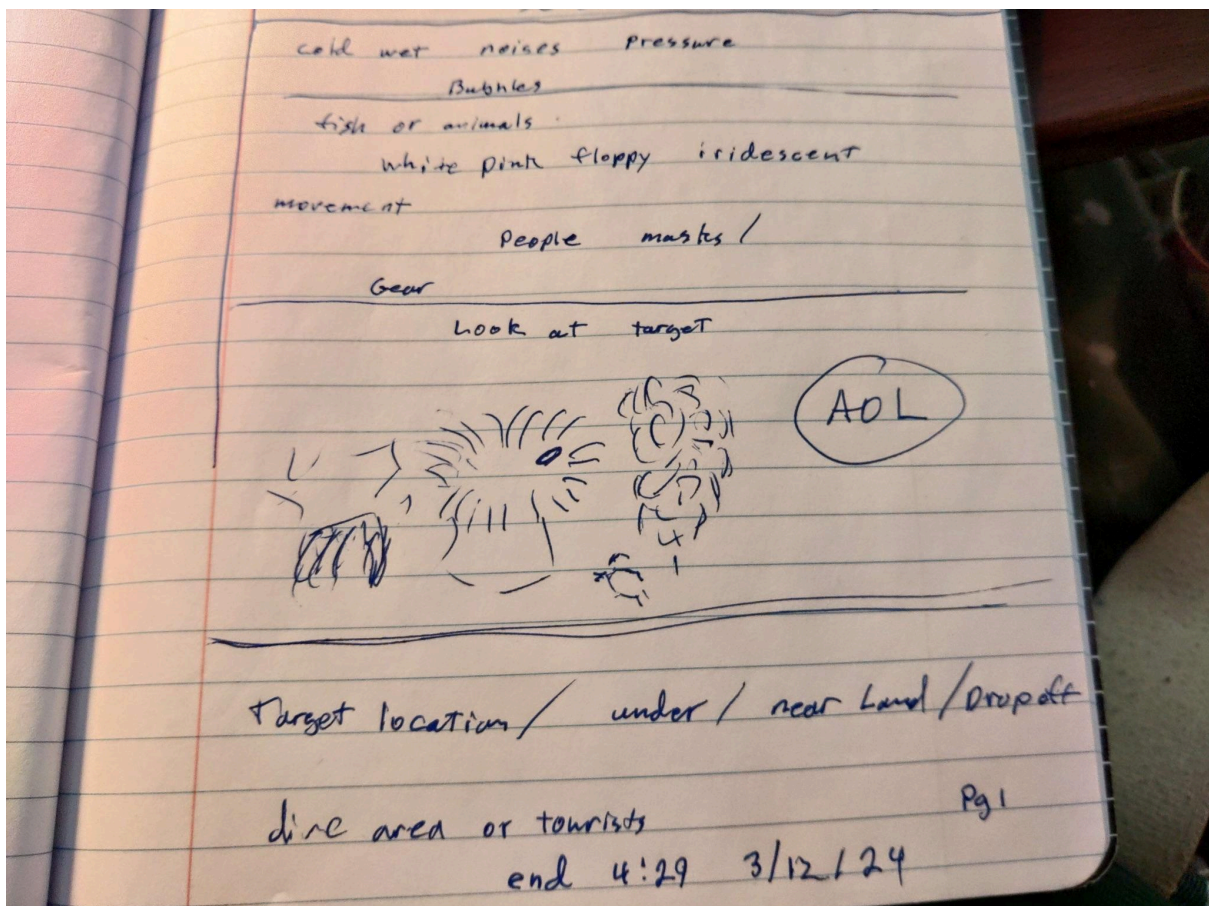 cold wet noises Pressure
Bubbles
fish or animals
white pink floppy iridescent
movement
People masks /
Gear
Look at target
AOL
Target location / under / near Land / Dropoff
dive area or tourists
Pg 1
end 4:29 3/12/24